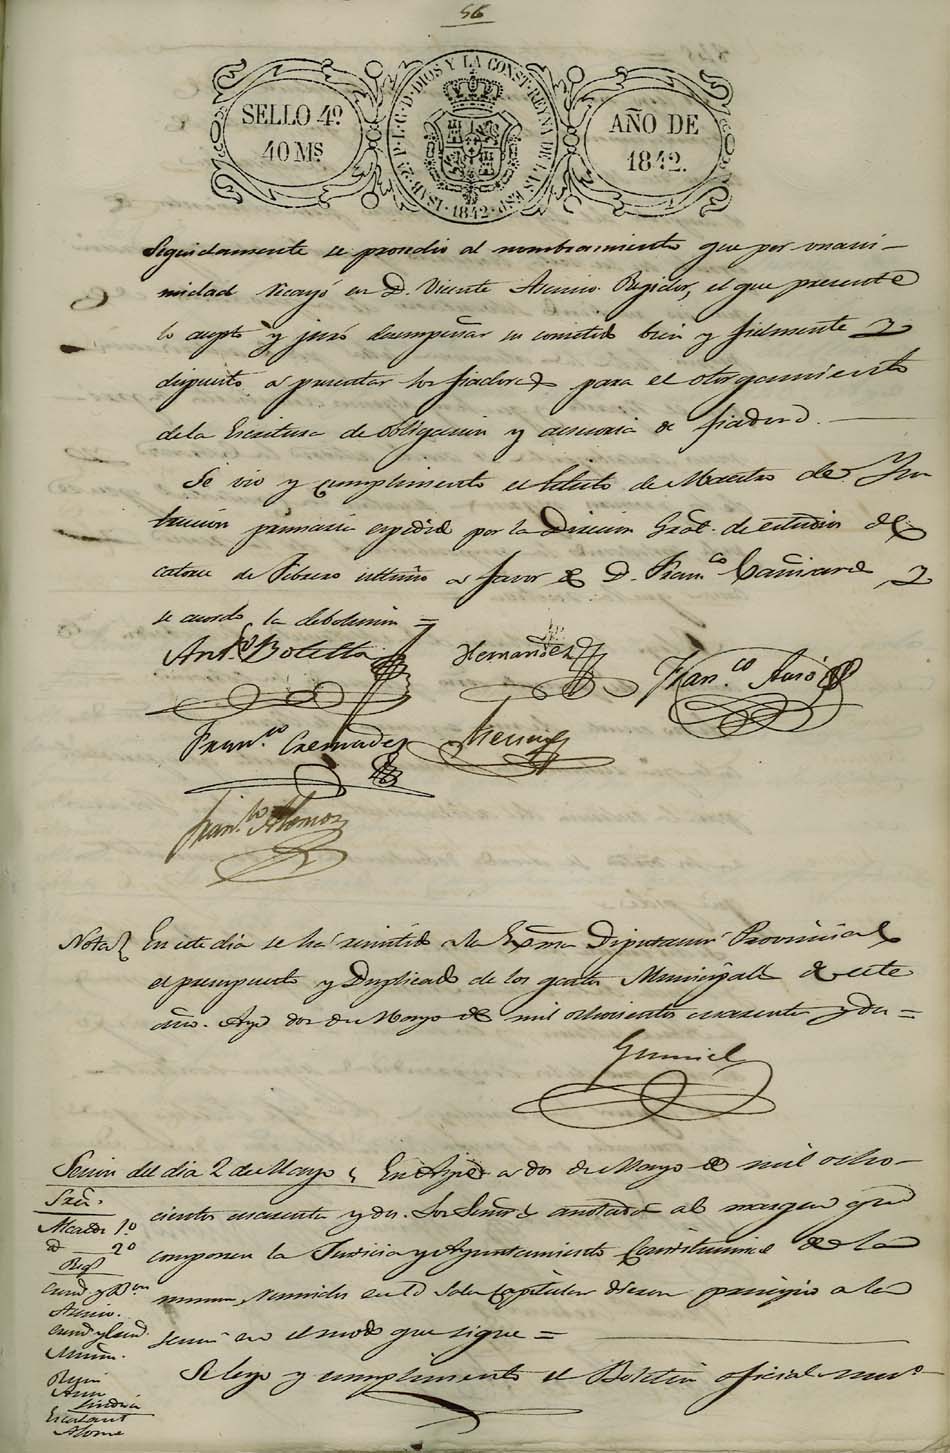 56
SELLO 4º
40 Ms
ISAB. 2ª P. L. G. D. DIOS Y LA CONST. REYNA DE LAS ESP. 1842
AÑO DE
1842.
Seguidamente se procedio al nombramiento que por unani-
midad recayó en D. Vicente Asensio Regidor, el que presente
lo acepto y juró desempeñar su cometido bien y fielmente y
dispuesto a presentar los fiadores para el otorgamiento
de la Escritura de obligacion y de fiador.
Se vio y cumplimento el titulo de Maestro de Yns
truccion primaria espedido por la Direccion Gral. de estudios del
catorce de Febrero ultimo a favor de D. Franco Cañizares y
se acordo la debolucion =
Anto Botella
Hernandez
Franco Auró
Franco Cremades
Asensio
Franco Alonso
Nota En este dia se há remitido a la Exma Diputacion Provincial
el presupuesto y Duplicado de los gastos Municipales de este
año. Aspe dos de Mayo de mil ochocientos cuarenta y dos =
Gumiel
Sesion del dia 2 de Mayo En Aspe a dos de Mayo de mil ocho-
cientos cuarenta y dos. Los Señores anotados al margen que
componen la Justicia y Ayuntamiento Constitucional de la
misma, reunidos en la Sala Capitular dieron principio a la
sesion en el modo que sigue =
Se leyo y cumplimento el Boletin oficial numo
Sres.
Alcalde 1º
d 2º
Regs
Asensio.